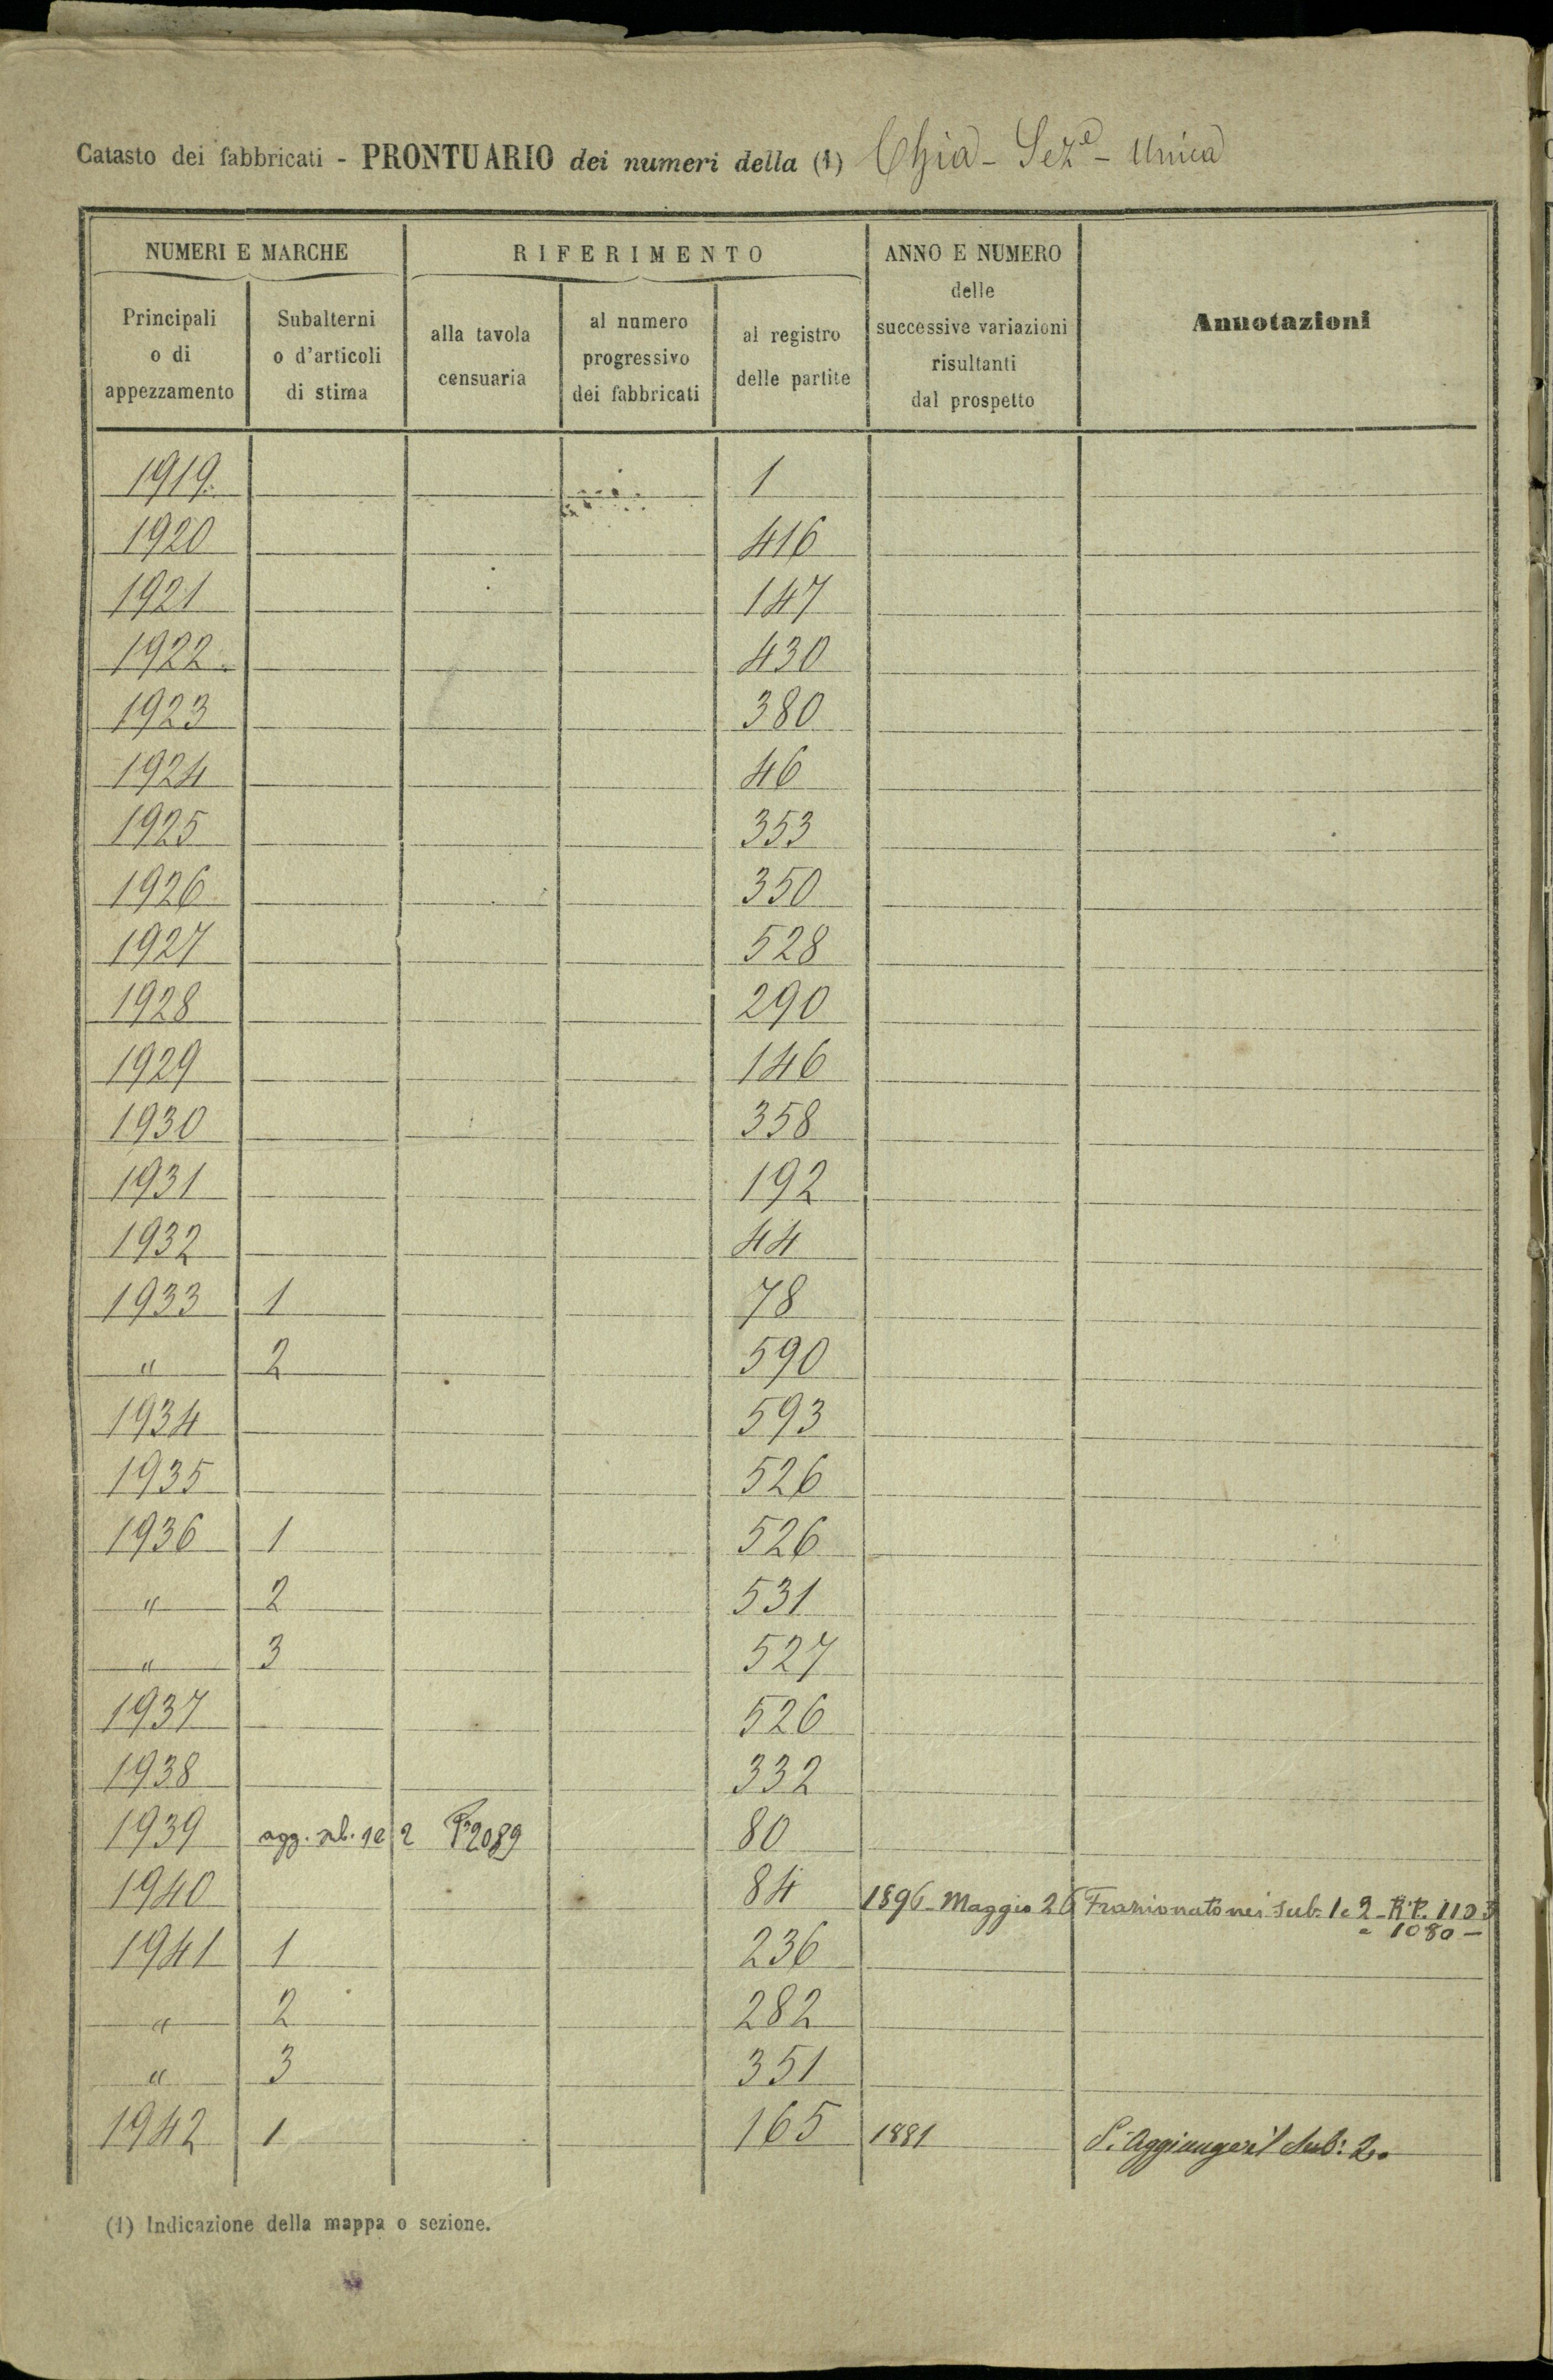 Catasto dei fabbricati - PRONTUARIO dei numeri della (1) Chia - Sez.e - Unica
NUMERI E MARCHE
RIFERIMENTO
ANNO E NUMERO
delle
successive variazioni
risultanti
dal prospetto
Annotazioni
Principali
o di
appezzamento
Subalterni
o d'articoli
di stima
alla tavola
censuaria
al numero
progressivo
dei fabbricati
al registro
delle partite
1919. 1
1920 416
1921 147
1922. 430
1923 380
1924 46
1925 353
1926 350
1927 528
1928 290
1929 146
1930 358
1931 192
1932 44
1933 1 78
" 2 590
1934 593
1935 526
1936 1 526
" 2 531
" 3 527
1937 526
1938 332
1939 agg. sub. 1 e 2 2089 80
1940 84 1896 - Maggio 26 Frazionato nei sub. 1 e 2 - R.P. 1103
" 1080 -
1941 1 236
" 2 282
" 3 351
1942 1 165 1881 Si aggiunge il Sub: 2.
(1) Indicazione della mappa o sezione.